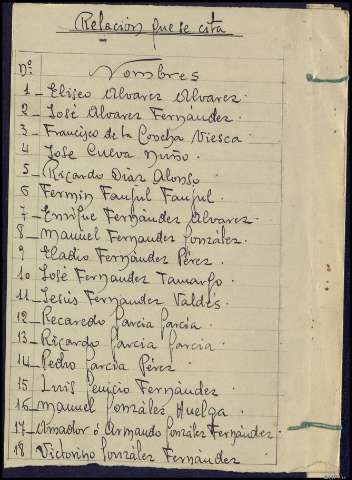 Relación que se cita
Nº Nombres
1 - Eliseo Alvarez Alvarez.
2 - José Alvarez Fernández.
3 - Francisco de la Concha Viesca
4 José Cueva Nuño.
5 - Ricardo Diaz Alonso
6 Fermin Fanjul Fanjul.
7 - Enrique Fernández Alvarez.
8 - Manuel Fernandez González.
9 - Eladio Fernández Pérez.
10 José Fernandez Tamargo.
11 - Jesús Fernandez Valdés.
12 - Recaredo Garcia Garcia.
13 - Ricardo Garcia Garcia
14 - Pedro Garcia Pérez
15 Luis Fernández.
16 - Manuel González Huelga.
17 - Amador o Armando González Fernández.
18 Victorino González Fernández